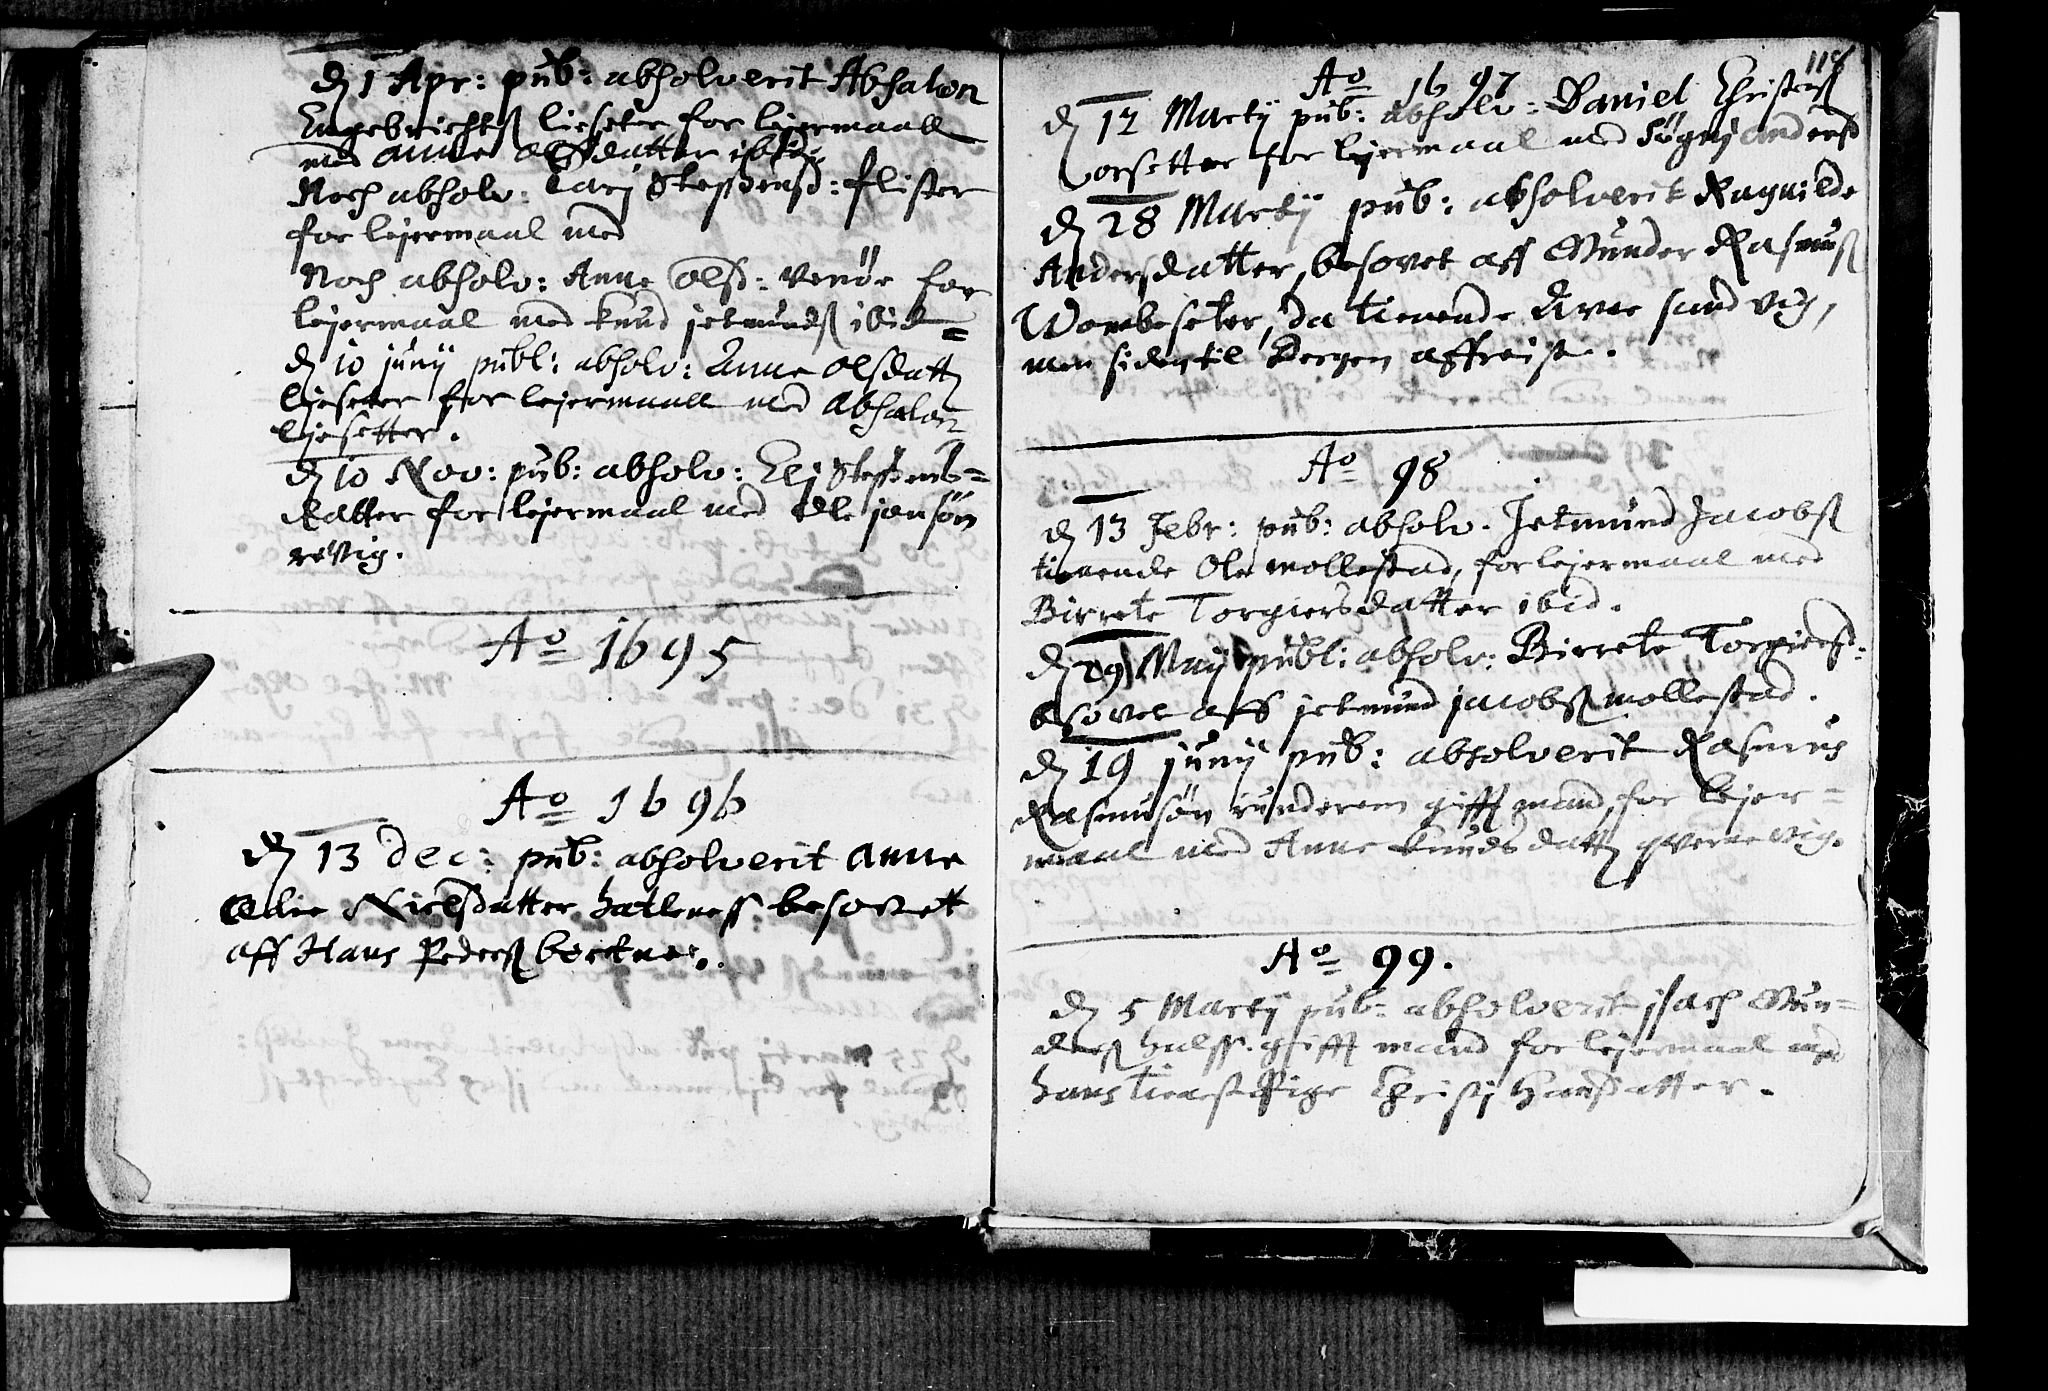 d 1 Apr: pub: absolverit Absalon
Engebrichtß lieseter for lejermaall
med Anne olsdatter ibid.
Noch absolv: Carj Steffensd: flister
for lejermaal med
Noch absolv: Anne olsd: venör for
lejermaal med knud jetmundß ibid=
d 10 junij publ: absolv: Anne olsdatt
ljeseter for lejermaall med Absalon
ljesetter.
d 10 Nov: pub: absolv: Elj Steffens=
datter for lejermaal med Ole jansön
revig.
Ao 1695
Ao 1696
d 13 dec: pub: absolverit Anne
Nielsdatter hatleness besovet
aff Hans Pederß
118
Ao 1697
d 12 Martij pub: absolv: Daniel Christenß
orsetter for lejermaal med Andersd
d 28 Martij pub: absolverit Ragnilde
Andersdatter, besovet aff Gunder Rasmusß
Wombeseter, da tienende Arne sandvig,
men siden til Bergen affreist.
Ao 98
d 13 Febr: pub: absolv. Jetmund Jacobsß
tienende Ole mollestad, for lejermaal med
Birrete Torgiersdatter ibid.
d 29 Maij publ: absolv: Birrete Torgiersd:
besovet aff jetmund jacobsß mollestad.
d 19 junij pub: absolverit Rasmus
Rasmusön runderem gifft mand, for lejer=
maal med Anne knudsdatt qvernevig.
Ao 99.
d 5 Martij pub: absolverit jsach Gun=
derß gifft mand for lejermaal med
hans tienistepige Christj Hansdatter.